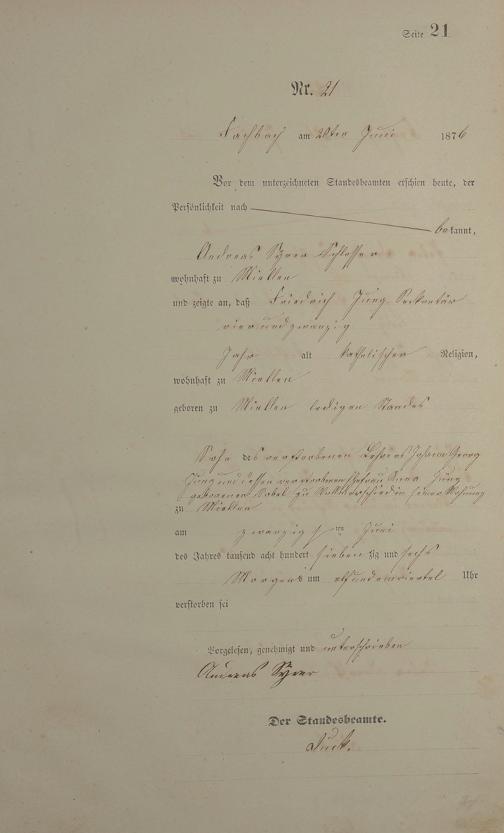 Seite 21
Nr. 21
Fachbach am 20ten Juni 1876
Vor dem unterzeichneten Standesbeamten erschien heute, der
Persönlichkeit nach
bekannt,
Andreas Schlosser
wohnhaft zu Miellen
und zeigte an, daß Friedrich Jung Sekretär
vierundzwanzig
Jahr alt katholischer Religion,
wohnhaft zu Miellen
geboren zu Miellen ledigen Standes
Sohn des verstorbenen Lehrers Johann Georg
Jung und dessen verstorbenen Ehefrau Anna Jung
geborenen in seiner Wohnung
zu Miellen
am zwanzigsten Juni
des Jahres tausend acht hundert siebenzig und sechs
Morgens um Uhr
verstorben sei
Vorgelesen, genehmigt und unterschrieben
Andreas
Der Standesbeamte.